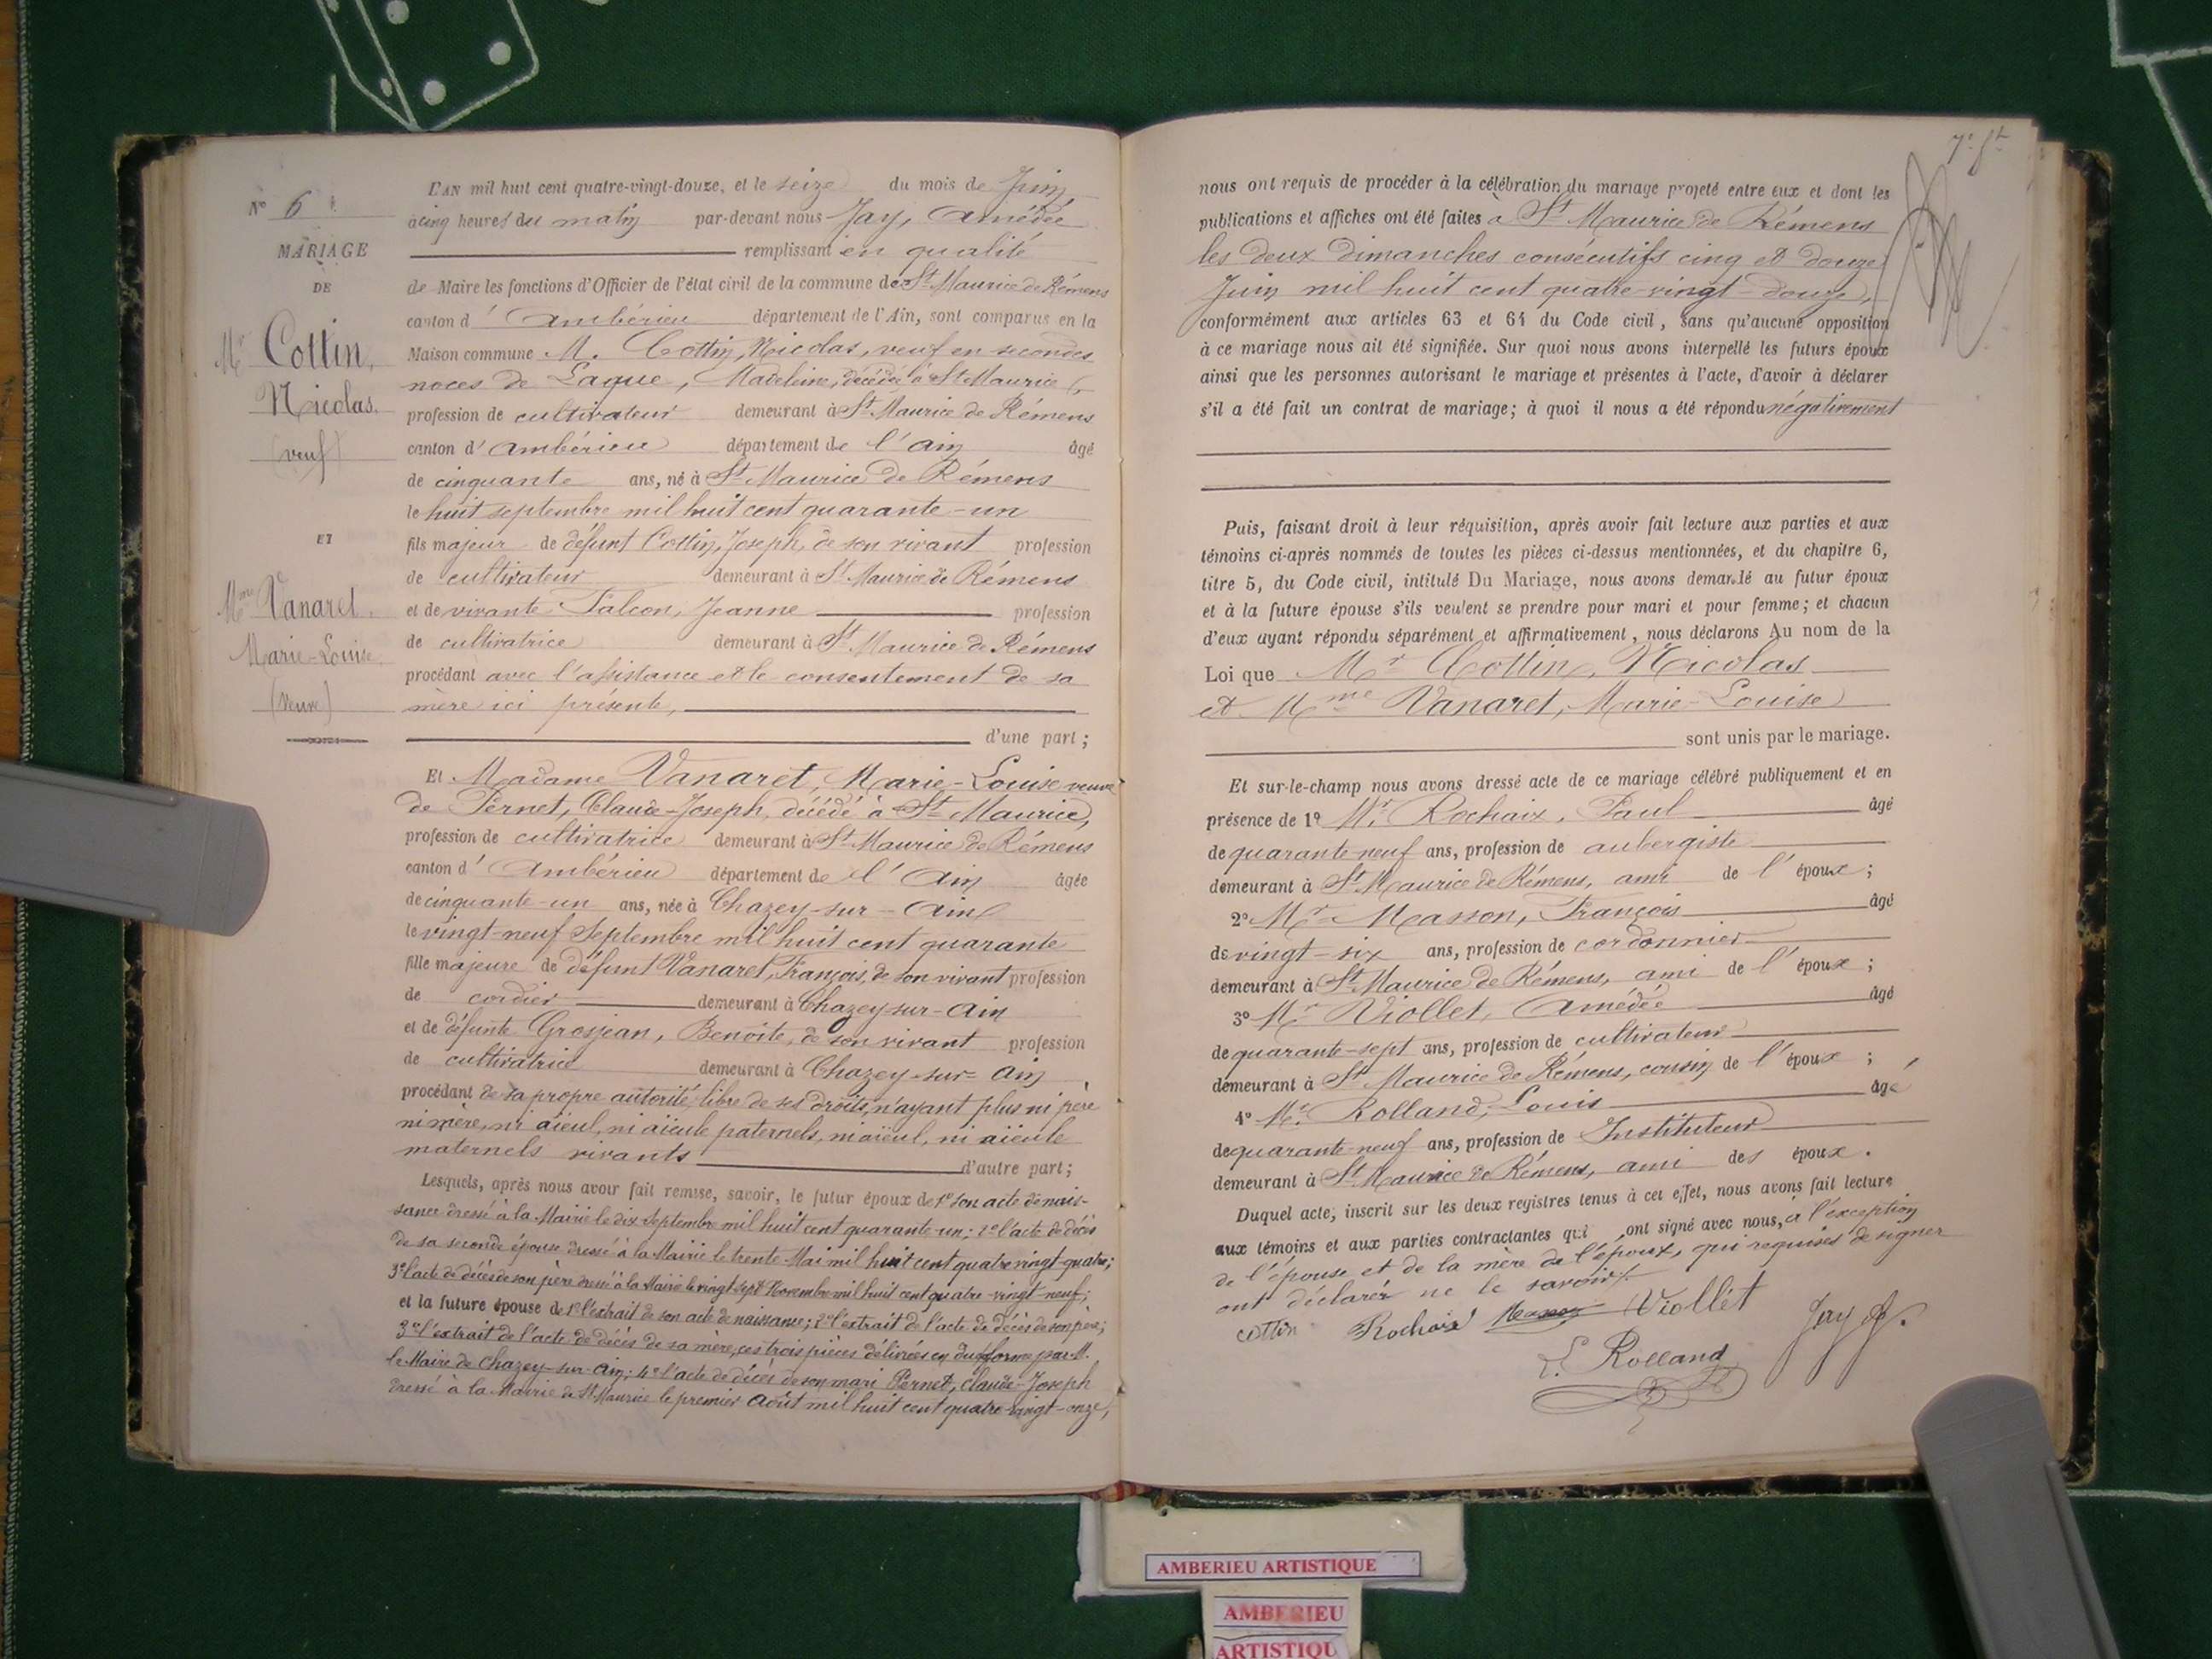 N° 6
MARIAGE
DE
Mr Cottin,
Nicolas.
(veuf)
ET
Mme Vanaret.
Marie-Louise.
(Veuve)
L'AN mil huit cent quatre-vingt-douze, et le seize du mois de Juin
à cinq heures du matin par-devant nous Jay, Amédée
remplissant en qualité
de Maire les fonctions d'Officier de l'état civil de la commune de St Maurice de Rémens
canton d'Ambérieu département de l'Ain, sont comparus en la
Maison commune M. Cottin, Nicolas, veuf en secondes
noces de Laque, Madeleine, décédée à St Maurice,
profession de cultivateur demeurant à St Maurice de Rémens
canton d'Ambérieu département de l'Ain âgé
de cinquante ans, né à St Maurice de Rémens
le huit septembre mil huit cent quarante-un
fils majeur de défunt Cottin, Joseph, de son vivant profession
de cultivateur demeurant à St Maurice de Rémens
et de vivante Falcon, Jeanne profession
de cultivatrice demeurant à St Maurice de Rémens
procédant avec l'assistance et le consentement de sa
mère ici présente,
d'une part;
Et Madame Vanaret, Marie-Louise veuve
de Pernet, Claude-Joseph, décédé à St Maurice,
profession de cultivatrice demeurant à St Maurice de Rémens
canton d'Ambérieu département de l'Ain âgée
de cinquante-un ans, née à Chazey-sur-Ain
le vingt-neuf Septembre mil huit cent quarante
fille majeure de défunt Vanaret, François, de son vivant profession
de cordier demeurant à Chazey-sur-Ain
et de défunte Grosjean, Benoite, de son vivant profession
de cultivatrice demeurant à Chazey-sur-Ain
procédant de sa propre autorité, libre de ses droits, n'ayant plus ni père
ni mère, ni aïeul, ni aïeule paternels, ni aïeul, ni aïeule
maternels vivants d'autre part;
Lesquels, après nous avoir fait remise, savoir, le futur époux de 1° son acte de nais-
sance dressé à la Mairie le dix Septembre mil huit cent quarante-un; 2° l'acte de décès
de sa seconde épouse dressé à la Mairie le trente Mai mil huit cent quatre vingt-quatre;
3° l'acte de décès de son père dressé à la Mairie le vingt sept Novembre mil huit cent quatre-vingt-neuf;
et la future épouse de 1° l'extrait de son acte de naissance; 2° l'extrait de l'acte de décès de son père;
3° l'extrait de l'acte de décès de sa mère, ces trois pièces délivrées en due forme par M.
le Maire de Chazey-sur-Ain; 4° l'acte de décès de son mari Pernet, Claude-Joseph
dressé à la Mairie de St Maurice le premier Août mil huit cent quatre-vingt-onze,
nous ont requis de procéder à la célébration du mariage projeté entre eux et dont les
publications et affiches ont été faites à St Maurice de Rémens
les deux dimanches consécutifs cinq et douze
Juin mil huit cent quatre-vingt-douze,
conformément aux articles 63 et 64 du Code civil, sans qu'aucune opposition
à ce mariage nous ait été signifiée. Sur quoi nous avons interpellé les futurs époux
ainsi que les personnes autorisant le mariage et présentes à l'acte, d'avoir à déclarer
s'il a été fait un contrat de mariage; à quoi il nous a été répondu négativement
Puis, faisant droit à leur réquisition, après avoir fait lecture aux parties et aux
témoins ci-après nommés de toutes les pièces ci-dessus mentionnées, et du chapitre 6,
titre 5, du Code civil, intitulé Du Mariage, nous avons demandé au futur époux
et à la future épouse s'ils veulent se prendre pour mari et pour femme; et chacun
d'eux ayant répondu séparément et affirmativement, nous déclarons Au nom de la
Loi que Mr Cottin, Nicolas
et Mme Vanaret, Marie-Louise
sont unis par le mariage.
Et sur-le-champ nous avons dressé acte de ce mariage célébré publiquement et en
présence de 1° Mr Rochaix, Paul âgé
de quarante-neuf ans, profession de aubergiste
demeurant à St Maurice de Rémens, ami de l'époux;
2° Mr Masson, François âgé
de vingt-six ans, profession de cordonnier
demeurant à St Maurice de Rémens, ami de l'époux;
3° Mr Viollet, Amédée âgé
de quarante-sept ans, profession de cultivateur
demeurant à St Maurice de Rémens, cousin de l'époux;
4° Mr Rolland, Louis âgé
de quarante-neuf ans, profession de Instituteur
demeurant à St Maurice de Rémens, ami des époux.
Duquel acte, inscrit sur les deux registres tenus à cet effet, nous avons fait lecture
aux témoins et aux parties contractantes qui ont signé avec nous, à l'exception
de l'épouse et de la mère de l'époux, qui requises de signer
ont déclaré ne le savoir.
Cottin Rochaix Masson Viollet Jay A.
L. Rolland
AMBERIEU ARTISTIQUE
AMBERIEU
ARTISTIQU